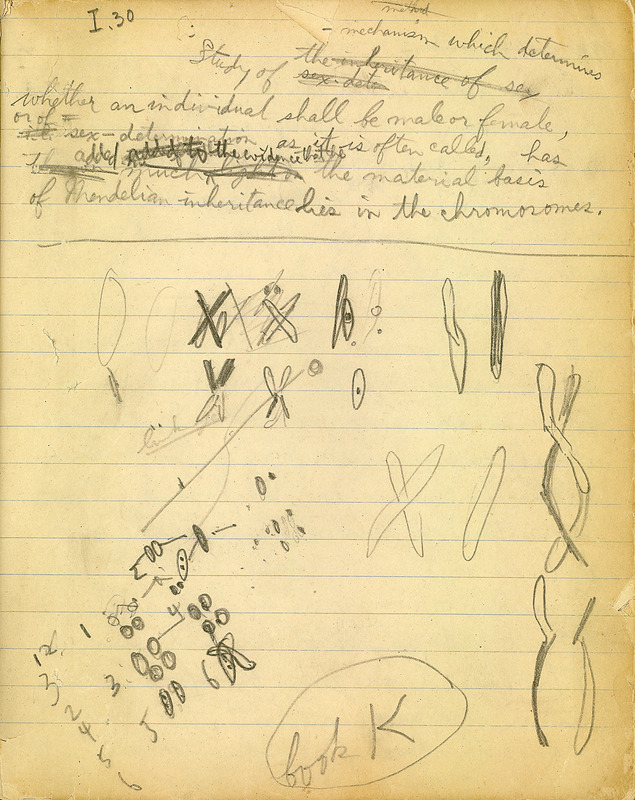 I. 30
method
- mechanism which determines
Study of the inheritance of sex
sex-dete
whether an individual shall be male or female,
or of =
sex-determination as it is often called, has
added to the evidence that
much the material basis
of Mendelian inheritance lies in the chromosomes.
link
2
1
4
12
3
3
6
2
4
5
5
6
book K